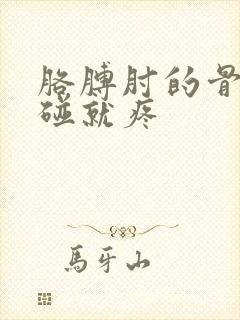 胳膊肘的骨
碰就疼
馬牙山